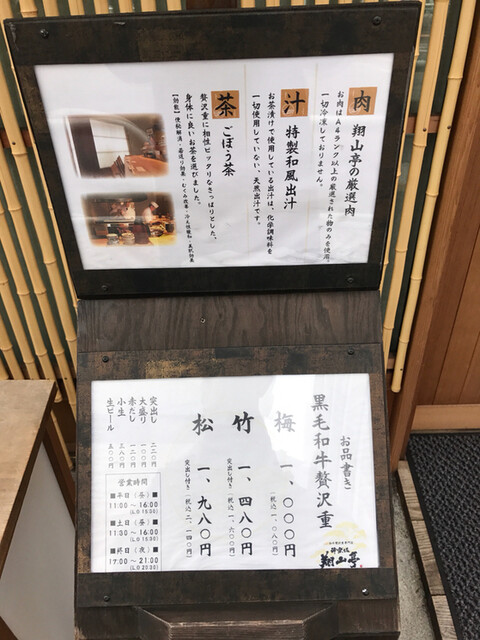 肉 翔山亭の厳選肉
お肉はA4ランク以上の厳選された物のみを使用。
一切冷凍しておりません。
汁 特製和風出汁
お茶漬けで使用している出汁は、化学調味料を
一切使用していない、天然出汁です。
茶 ごぼう茶
贅沢重に相性ピッタリなさっぱりとした、
身体に良いお茶を選びました。
お品書き
黒毛和牛贅沢重
梅 一、〇〇〇円
(税込一、〇八〇円)
竹 一、四八〇円
突出し付き (税込一、六〇〇円)
松 一、九八〇円
突出し付き (税込二、一四〇円)
突出し 二二〇円
大盛り 一〇〇円
赤だし 一二〇円
小生 三八〇円
生ビール 五〇〇円
営業時間
■平日(昼)■
11:00~16:00
(L.O 15:30)
■土日(昼)■
11:30~16:00
(L.O 15:30)
■終日(夜)■
17:00~21:00
(L.O 20:30)
翔山亭